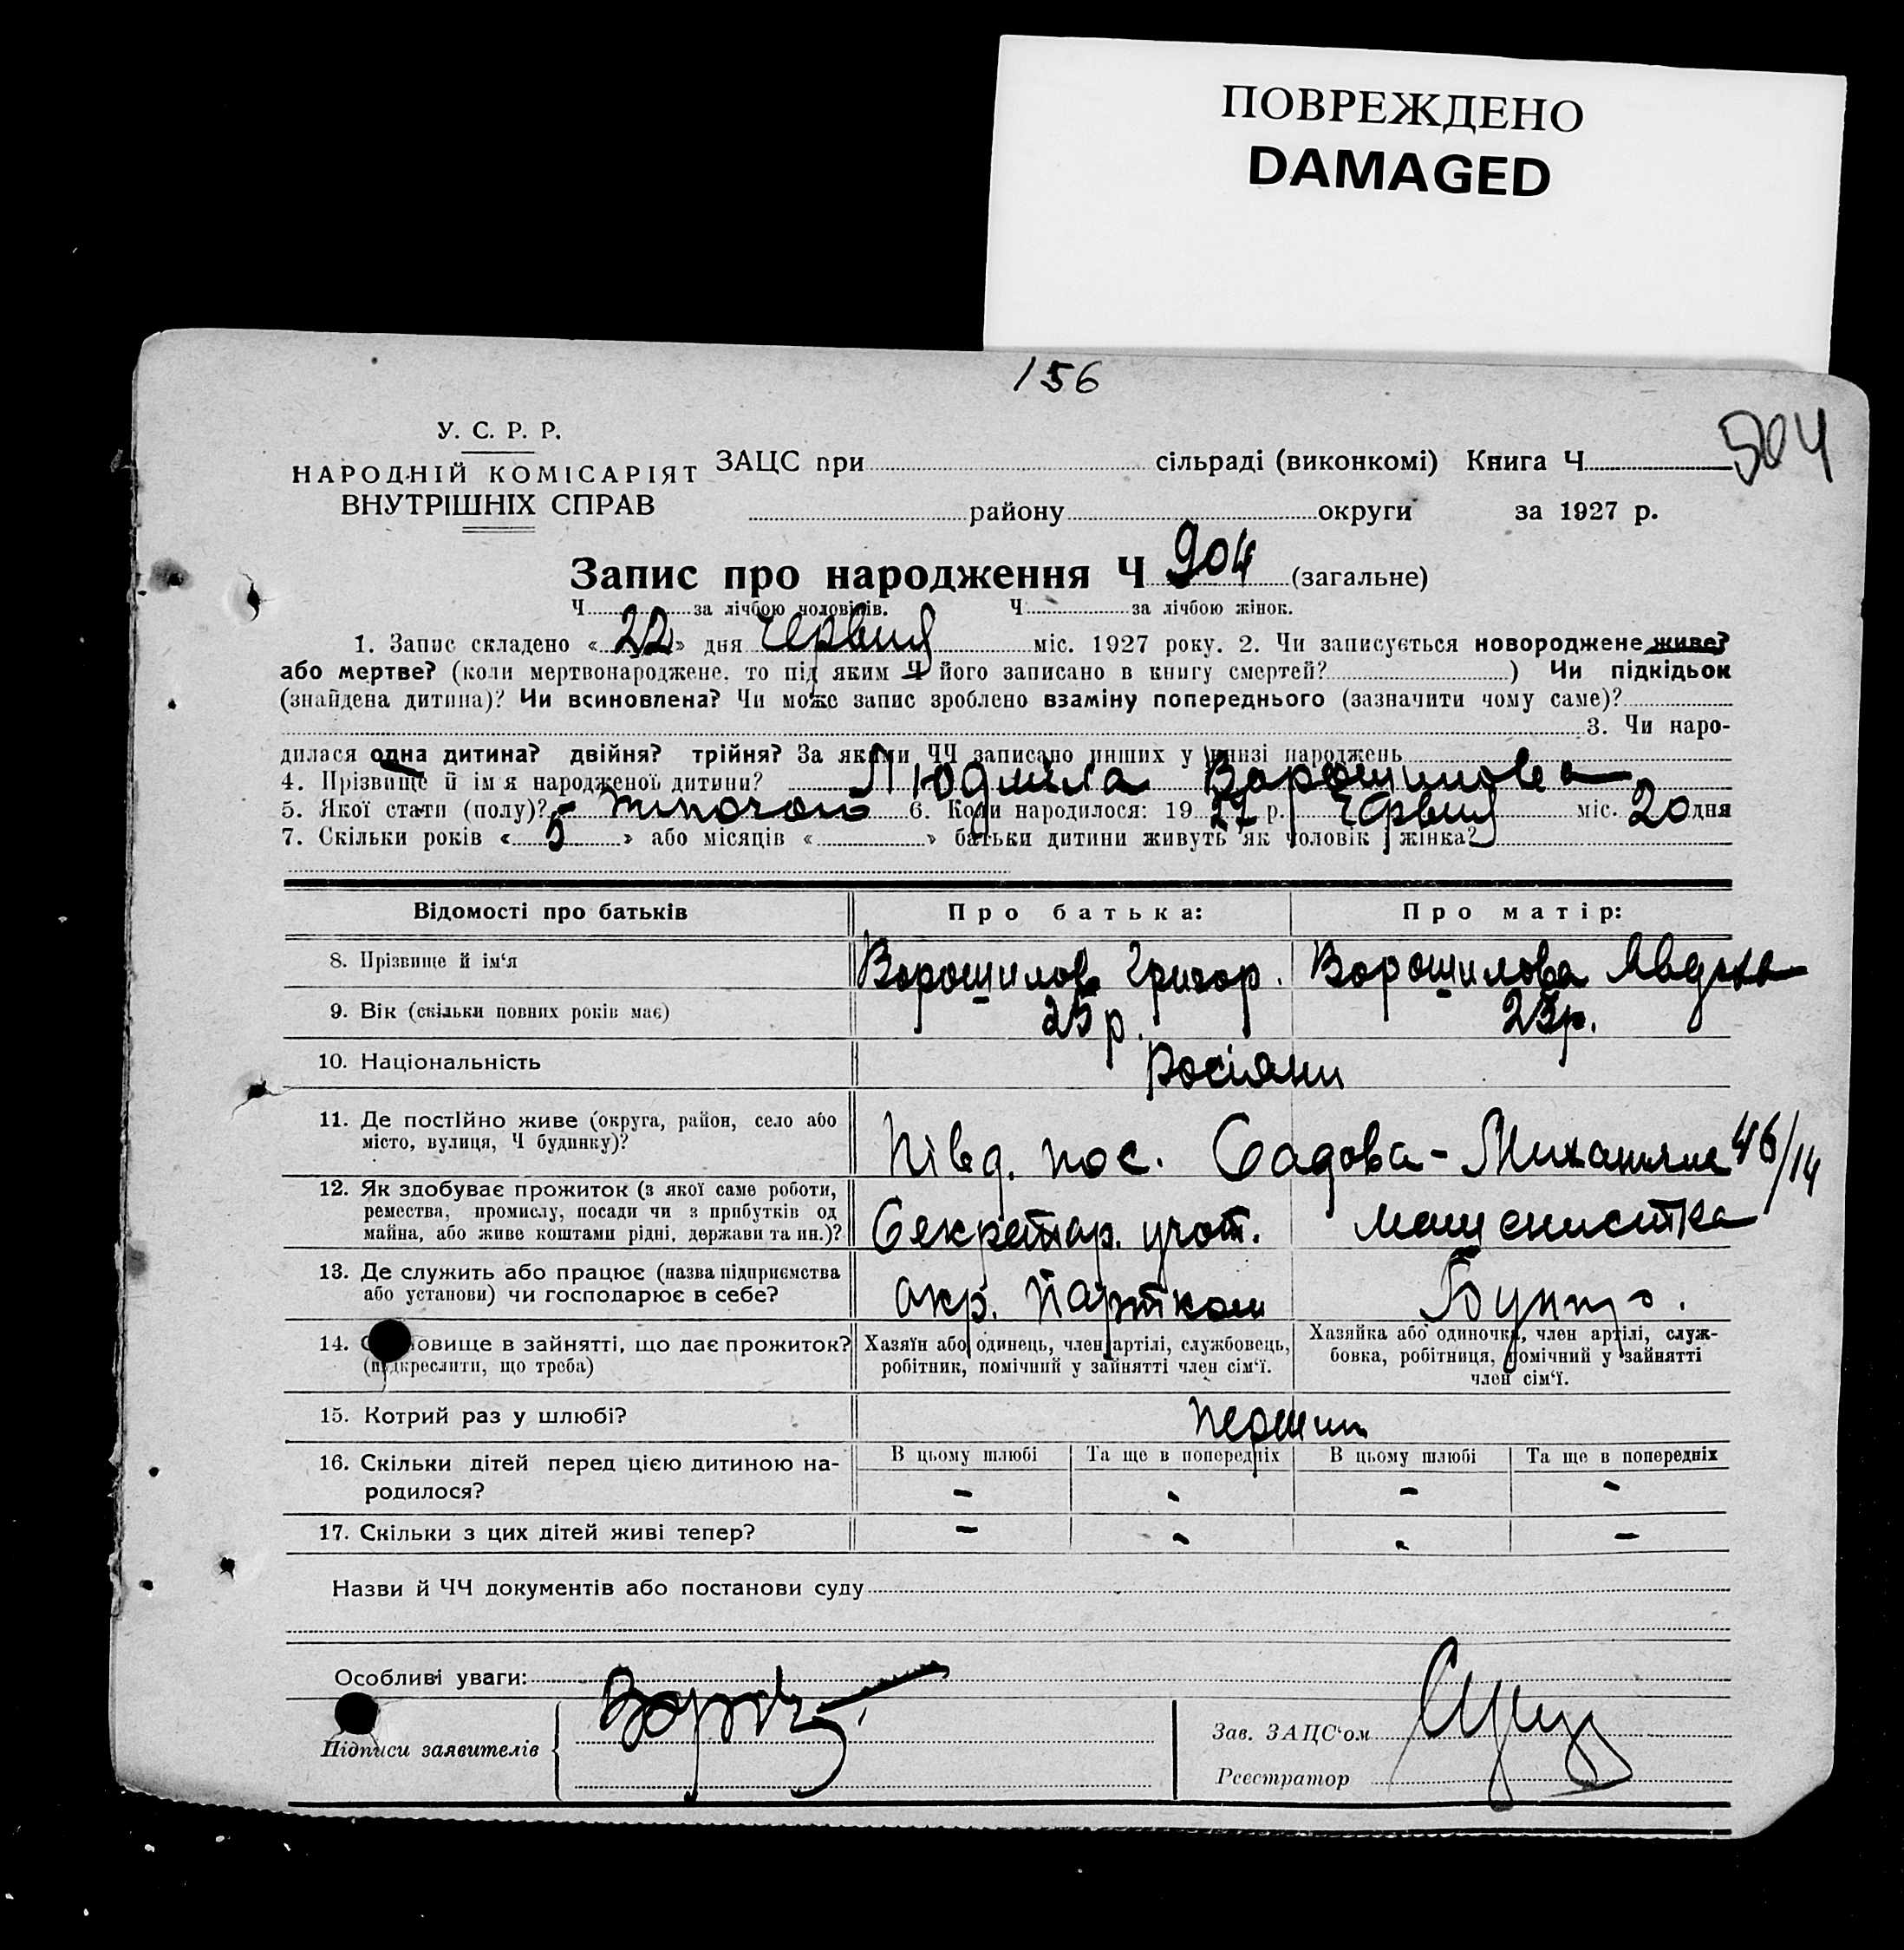 ПОВРЕЖДЕНО
DAMAGED
156
504
У. С. Р. Р.
НАРОДНІЙ КОМІСАРІЯТ
ВНУТРІШНІХ СПРАВ
ЗАЦС при сільраді (виконкомі) Книга Ч
району округи за 1927 р.
Запис про народження Ч 904 (загальне)
Ч за лічбою чоловіків. Ч за лічбою жінок.
1. Запис складено « 22 » дня Червня міс. 1927 року. 2. Чи записується новороджене живе?
або мертве? (коли мертвонароджене, то під яким Ч його записано в книгу смертей? ) Чи підкідьок
(знайдена дитина)? Чи всиновлена? Чи може запис зроблено взаміну попереднього (зазначити чому саме)?
3. Чи наро-
дилася одна дитина? двійня? трійня? За якими ЧЧ записано инших у книзі народжень
4. Прізвище й ім'я народженої дитини? Людмила Ворошилова
5. Якої стати (полу)? - жіночої 6. Коли народилося: 19 27 р. Червня міс. 20 дня
7. Скільки років « 5 » або місяців « » батьки дитини живуть як чоловік і жінка?
Відомості про батьків Про батька: Про матір:
8. Прізвище й ім'я Ворошилов Григор. Ворошилова Явдоха
9. Вік (скільки повних років має) 25 р. 23 р.
10. Національність росіяни
11. Де постійно живе (округа, район, село або
місто, вулиця, Ч будинку)?
Півд. пос. Садова- 46/14
12. Як здобуває прожиток (з якої саме роботи,
ремества, промислу, посади чи з прибутків од
майна, або живе коштами рідні, держави та ин.)?
Секретар. учот. машенистка
13. Де служить або працює (назва підприємства
або установи) чи господарює в себе?
окр. Партком
14. овище в зайнятті, що дає прожиток?
(підкреслити, що треба)
Хазяїн або одинець, член артілі, службовець,
робітник, помічний у зайнятті член сім'ї.
Хазяйка або одиночка, член артілі, служ-
бовка, робітниця, помічний у зайнятті
член сім'ї.
15. Котрий раз у шлюбі? перший
16. Скільки дітей перед цією дитиною на-
родилося?
В цьому шлюбі Та ще в попередніх В цьому шлюбі Та ще в попередніх
- - - -
17. Скільки з цих дітей живі тепер? - - - -
Назви й ЧЧ документів або постанови суду
Особливі уваги:
Підписи заявителів
Зав. ЗАЦС'ом
Реєстратор